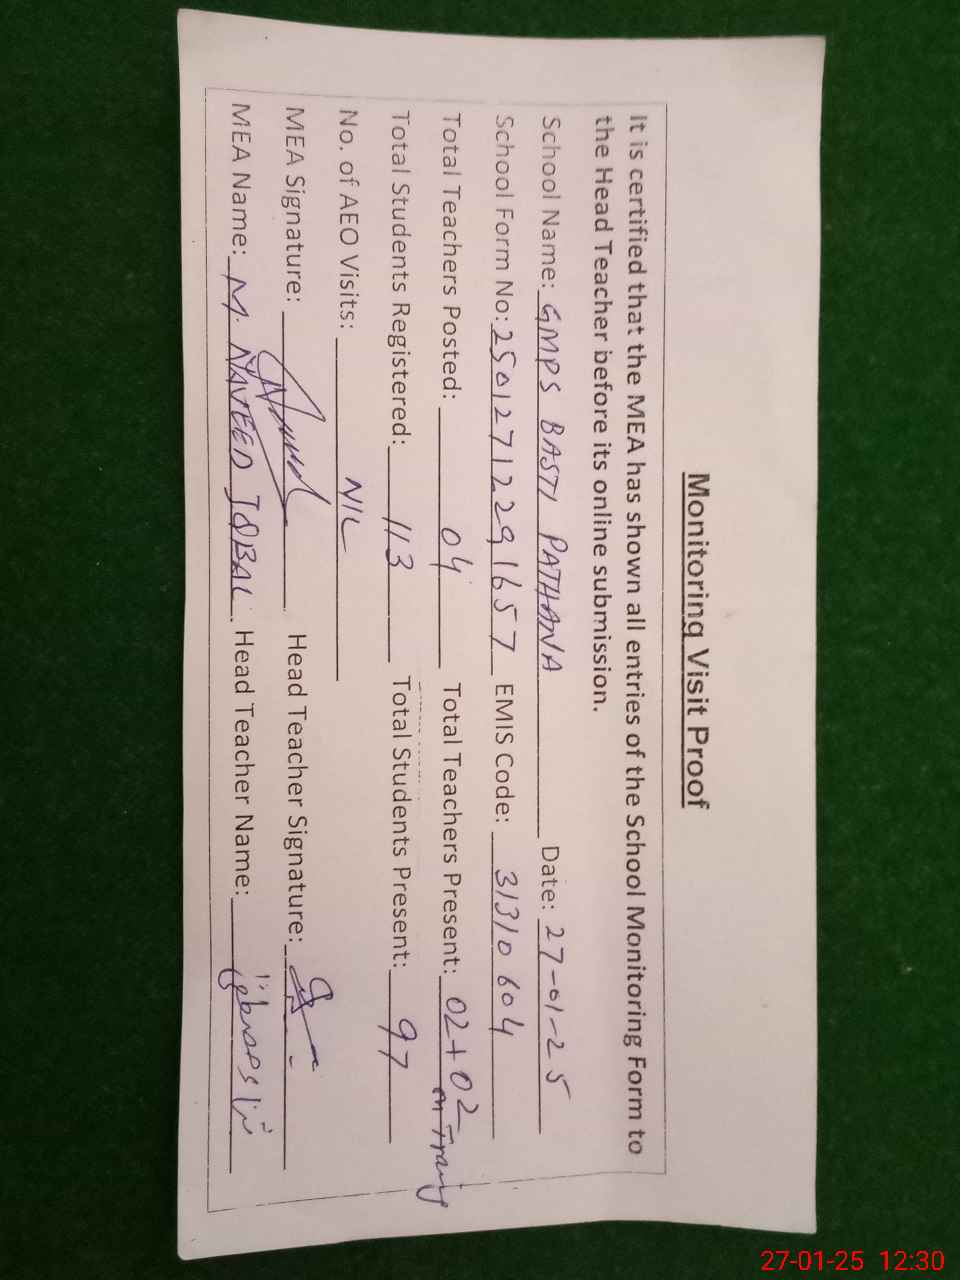 Monitoring Visit Proof
It is certified that the MEA has shown all entries of the School Monitoring Form to
the Head Teacher before its online submission.
School Name: GMPS BASTI PATHANA Date: 27-01-25
School Form No: 25012712291657 EMIS Code: 31310604
Total Teachers Posted: 04 Total Teachers Present: 02+02
on Traing
Total Students Registered: 113 Total Students Present: 97
No. of AEO Visits: NIL
MEA Signature: Head Teacher Signature:
MEA Name: M. NAVEED IQBAL Head Teacher Name:
27-01-25 12:30